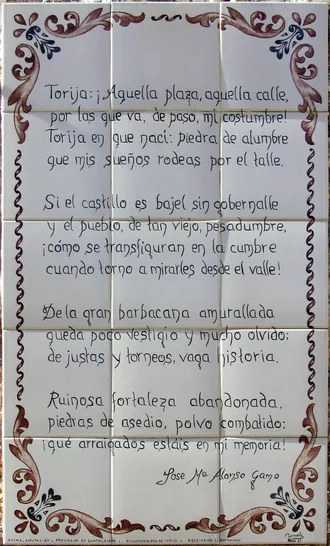 Torija: ¡Aquella plaza, aquella calle,
por las que va, de paso, mi costumbre!
Torija en que nací: piedra de alumbre
que mis sueños rodeas por el talle.
Si el castillo es bajel sin gobernalle
y el pueblo, de tan viejo, pesadumbre,
¡cómo se transfiguran en la cumbre
cuando torno a mirarles desde el valle!
De la gran barbacana amurallada
queda poco vestigio y mucho olvido;
de justas y torneos, vaga historia.
Ruinosa fortaleza abandonada,
piedras de asedio, polvo combatido:
¡qué arraigados estáis en mi memoria!
Jose Mª Alonso Gamo